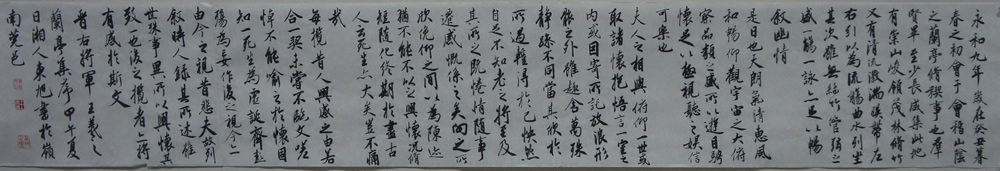 永和九年歲在癸丑暮
春之初會于會稽山陰
之蘭亭脩稧事也羣
賢畢至少長咸集此地
有崇山峻領茂林脩竹
又有清流激湍暎帶左
右引以為流觴曲水列坐
其次雖無絲竹管弦之
盛一觴一詠亦足以暢
敘幽情
是日也天朗氣清惠風
和暢仰觀宇宙之大俯
察品類之盛所以遊目騁
懷足以極視聽之娛信
可樂也
夫人之相與俯仰一世或
取諸懷抱悟言一室之
內或因寄所託放浪形
骸之外雖趣舍萬殊
静躁不同當其欣於
所遇蹔得於己怏然
自足不知老之將至及
其所之既惓情隨事
遷感慨係之矣向之所
欣俛仰之間以為陳迹
猶不能不以之興懷況脩
短隨化終期於盡古
人云死生亦大矣豈不痛
哉
每攬昔人興感之由若
合一契未嘗不臨文嗟
悼不能喻之於懷固
知一死生為虛誕齊彭
殤為妄作後之視今亦
由今之視昔悲夫故列
敘時人錄其所述雖
世殊事異所以興懷其
致一也後之攬者亦將
有感於斯文
晉右將軍王羲之
蘭亭集序甲午夏
日湘人東旭書於嶺
南莞邑